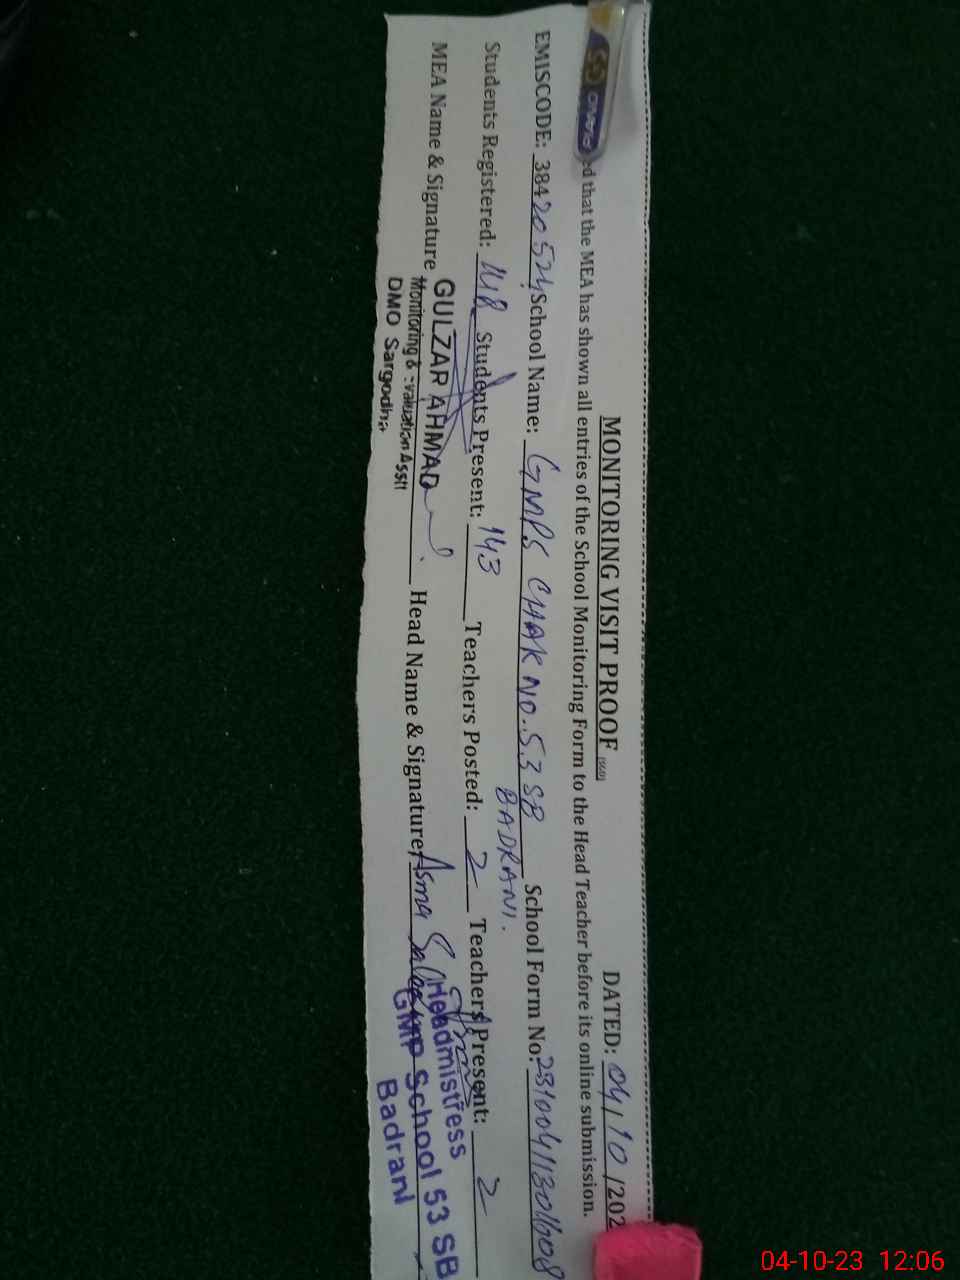 MONITORING VISIT PROOF (SED) DATED: 04/10/202
ed that the MEA has shown all entries of the School Monitoring Form to the Head Teacher before its online submission.
EMISCODE: 38420524 School Name: GMPS CHAK NO. 53 SB School Form No:
BADRANI.
Students Registered: Students Present: 143 Teachers Posted: 2 Teachers Present: 2
MEA Name & Signature GULZAR AHMAD Head Name & Signature, Asma
Monitoring & Evaluation Asstt
DMO Sargodha
Headmistress
GMP School 53 SB
Badrani
04-10-23 12:06